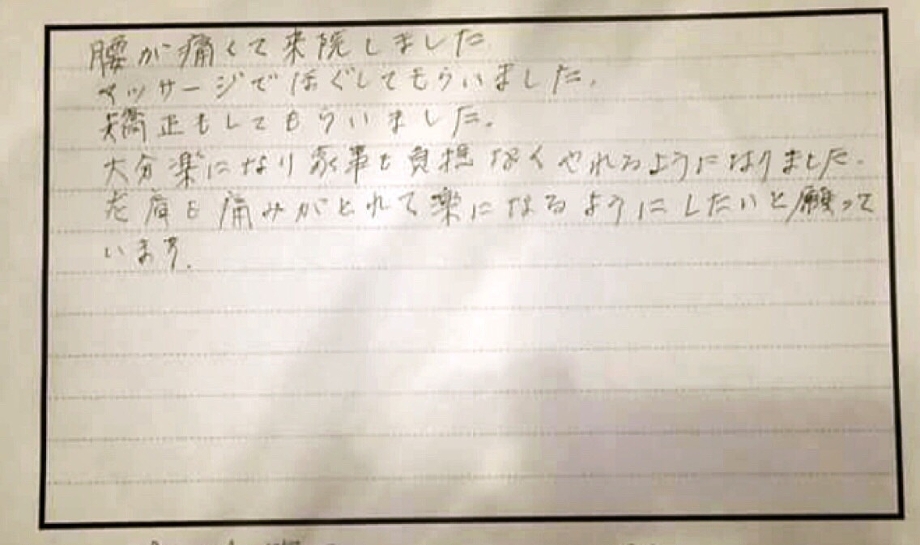 腰が痛くて来院しました
マッサージでほぐしてもらいました。
矯正もしてもらいました。
大分楽になり家事も負担なくやれるようになりました。
左肩も痛みがとれて楽になるようにしたいと願って
います。